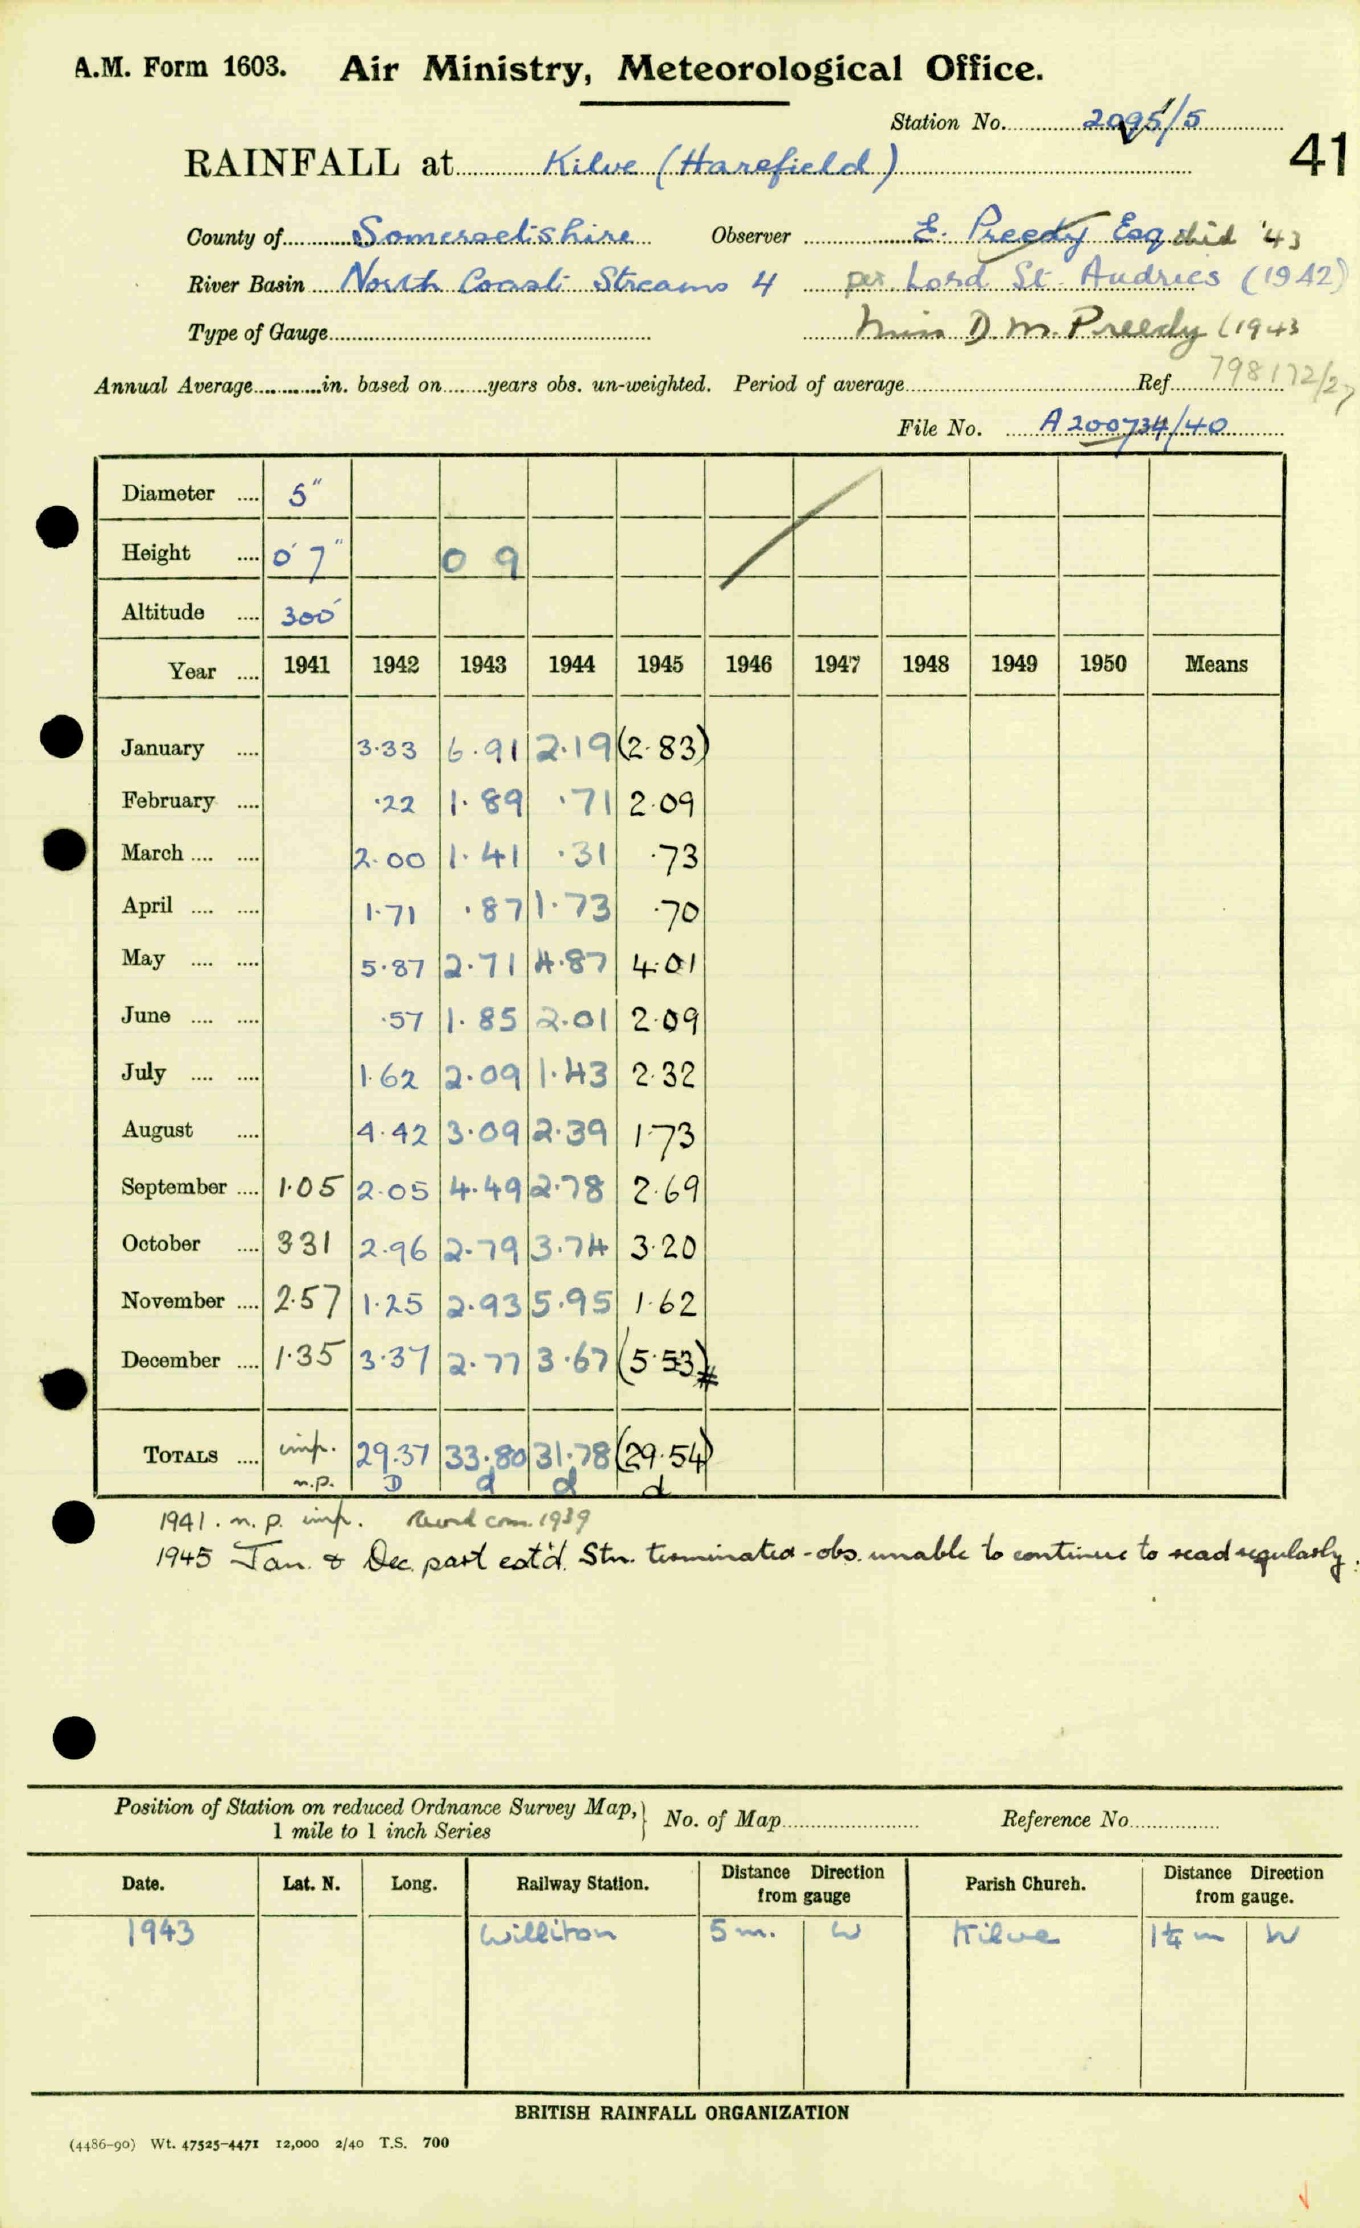 A.M. Form 1603. Air Ministry, Meteorological Office.
Station No. 2095/5
41
RAINFALL at Kilve (Harefield)
County of Somersetshire Observer E. Preedy Esq died '43
River Basin North Coast Streams 4 per Lord St. Audries (1942)
Type of Gauge Miss D. M. Preedy (1943
Annual Average in. based on years obs. un-weighted. Period of average Ref. 798172/27
File No. A200734/40
Diameter 5"
Height 0' 7" 0 9
Altitude 300'
Year 1941 1942 1943 1944 1945 1946 1947 1948 1949 1950 Means
January 3.33 6.91 2.19 (2.83)
February .22 1.89 .71 2.09
March 2.00 1.41 .31 .73
April 1.71 .87 1.73 .70
May 5.87 2.71 4.87 4.01
June .57 1.85 2.01 2.09
July 1.62 2.09 1.43 2.32
August 4.42 3.09 2.39 1.73
September 1.05 2.05 4.49 2.78 2.69
October 331 2.96 2.79 3.74 3.20
November 2.57 1.25 2.93 5.95 1.62
December 1.35 3.37 2.77 3.67 (5.53)#
TOTALS imp. 29.37 33.80 31.78 (29.54)
n.p. D d d d
1941. n.p. imp. Record com. 1939
1945 Jan. & Dec. part est'd. Stn. terminated - obs. unable to continue to read regularly.
Position of Station on reduced Ordnance Survey Map, } No. of Map Reference No.
1 mile to 1 inch Series
Date. Lat. N. Long. Railway Station. Distance Direction from gauge Parish Church. Distance Direction from gauge.
1943 Williton 5 m. W Kilve 1¼ m W
BRITISH RAINFALL ORGANIZATION
(4486-90) Wt. 47525-4471 12,000 2/40 T.S. 700